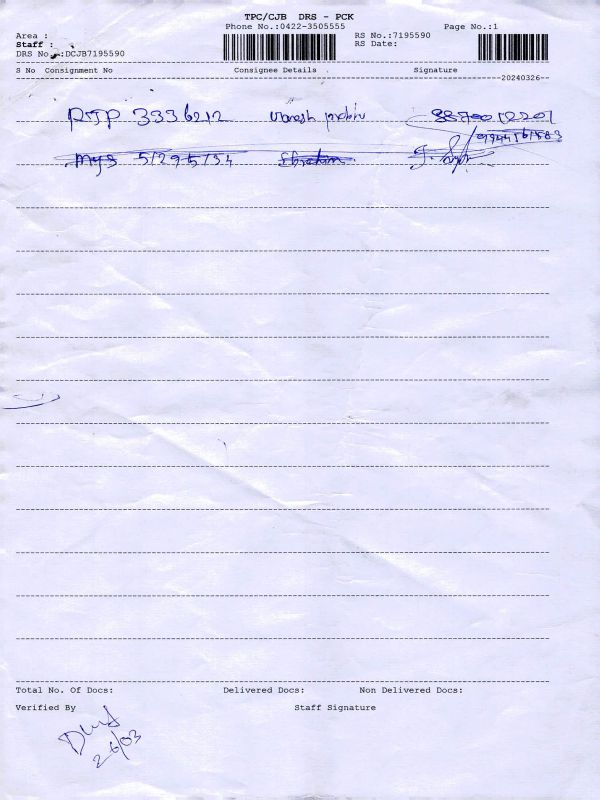 TPC/CJB DRS - PCK
Phone No.:0422-3505555 Page No.:1
Area : RS No.:7195590
Staff : RS Date:
DRS No.:DCJB7195590
S No Consignment No Consignee Details . Signature
20240326
3336212
mys 51295154 Ebrahim
Total No. Of Docs: Delivered Docs: Non Delivered Docs:
Verified By Staff Signature
26/03